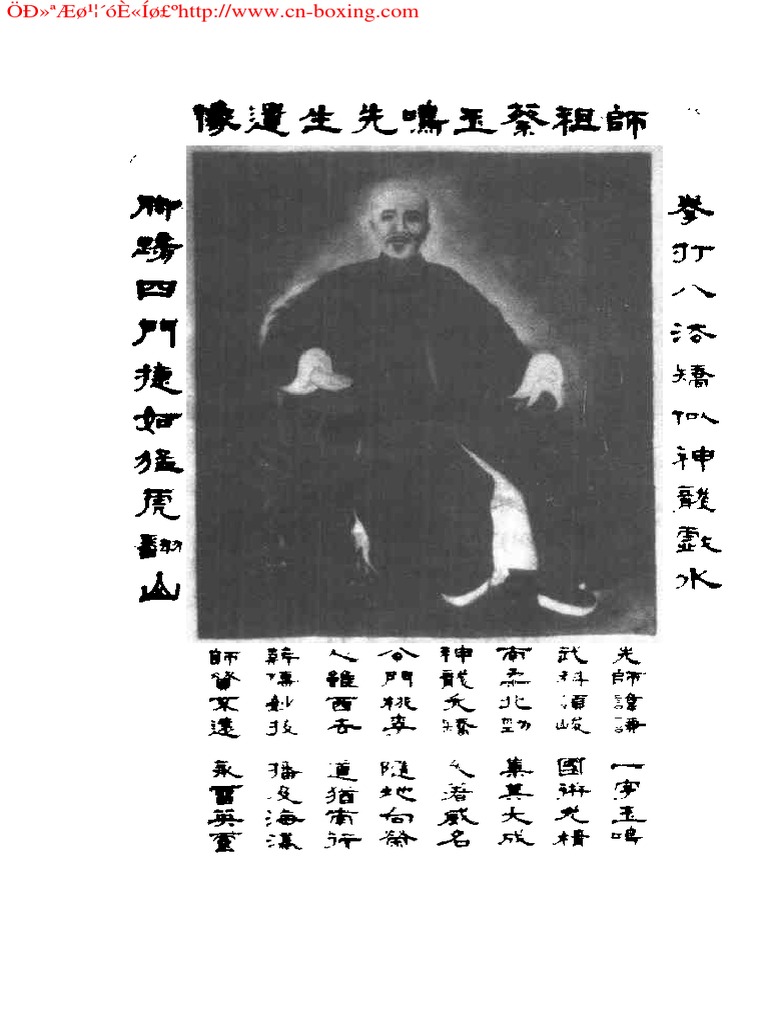 ÖÐ»ªÆø¹¦´óÈ«Íø£ºhttp://www.cn-boxing.com
師祖蔡玉鳴先生遺像
拳打八法矯似神龍戲水
腳踢四門捷如猛虎翻山
先師諱謙 一字玉鳴
武科 國術尤精
南柔北勁 集其大成
神龍夭矯 久著威名
公門桃李 隨地向榮
人雖西去 道猶南行
傳妙技 播及海
師 遠 永留英靈